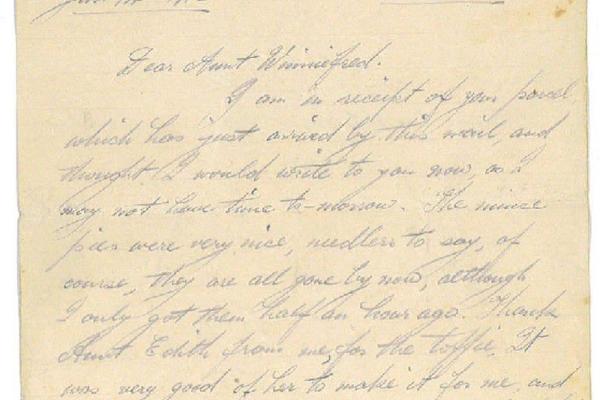 Dear Aunt Winniefred.
I am in receipt of your parcel
which has just arrived by this mail, and
thought I would write to you now, as I
may not have time to-morrow. The mince
pies were very nice, needless to say, of
course, they are all gone by now, although
I only got them half an hour ago. Thank
Aunt Edith from me, for the toffie. It
was very good of her to make it for me, and